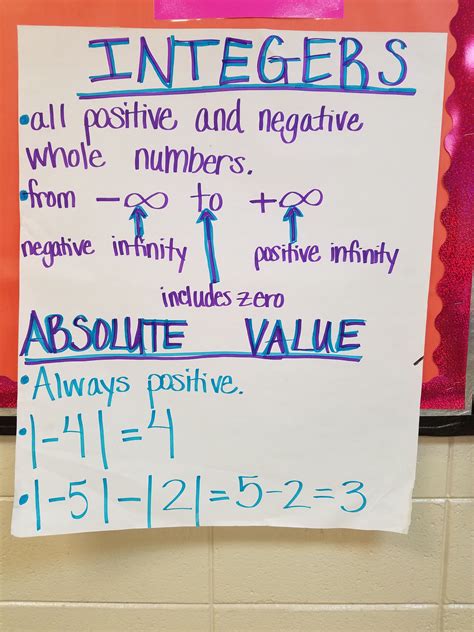 INTEGERS
•all positive and negative
whole numbers.
•from -∞ to +∞
negative infinity positive infinity
includes zero
ABSOLUTE VALUE
•Always positive.
•|-4|=4
•|-5|-|2|=5-2=3